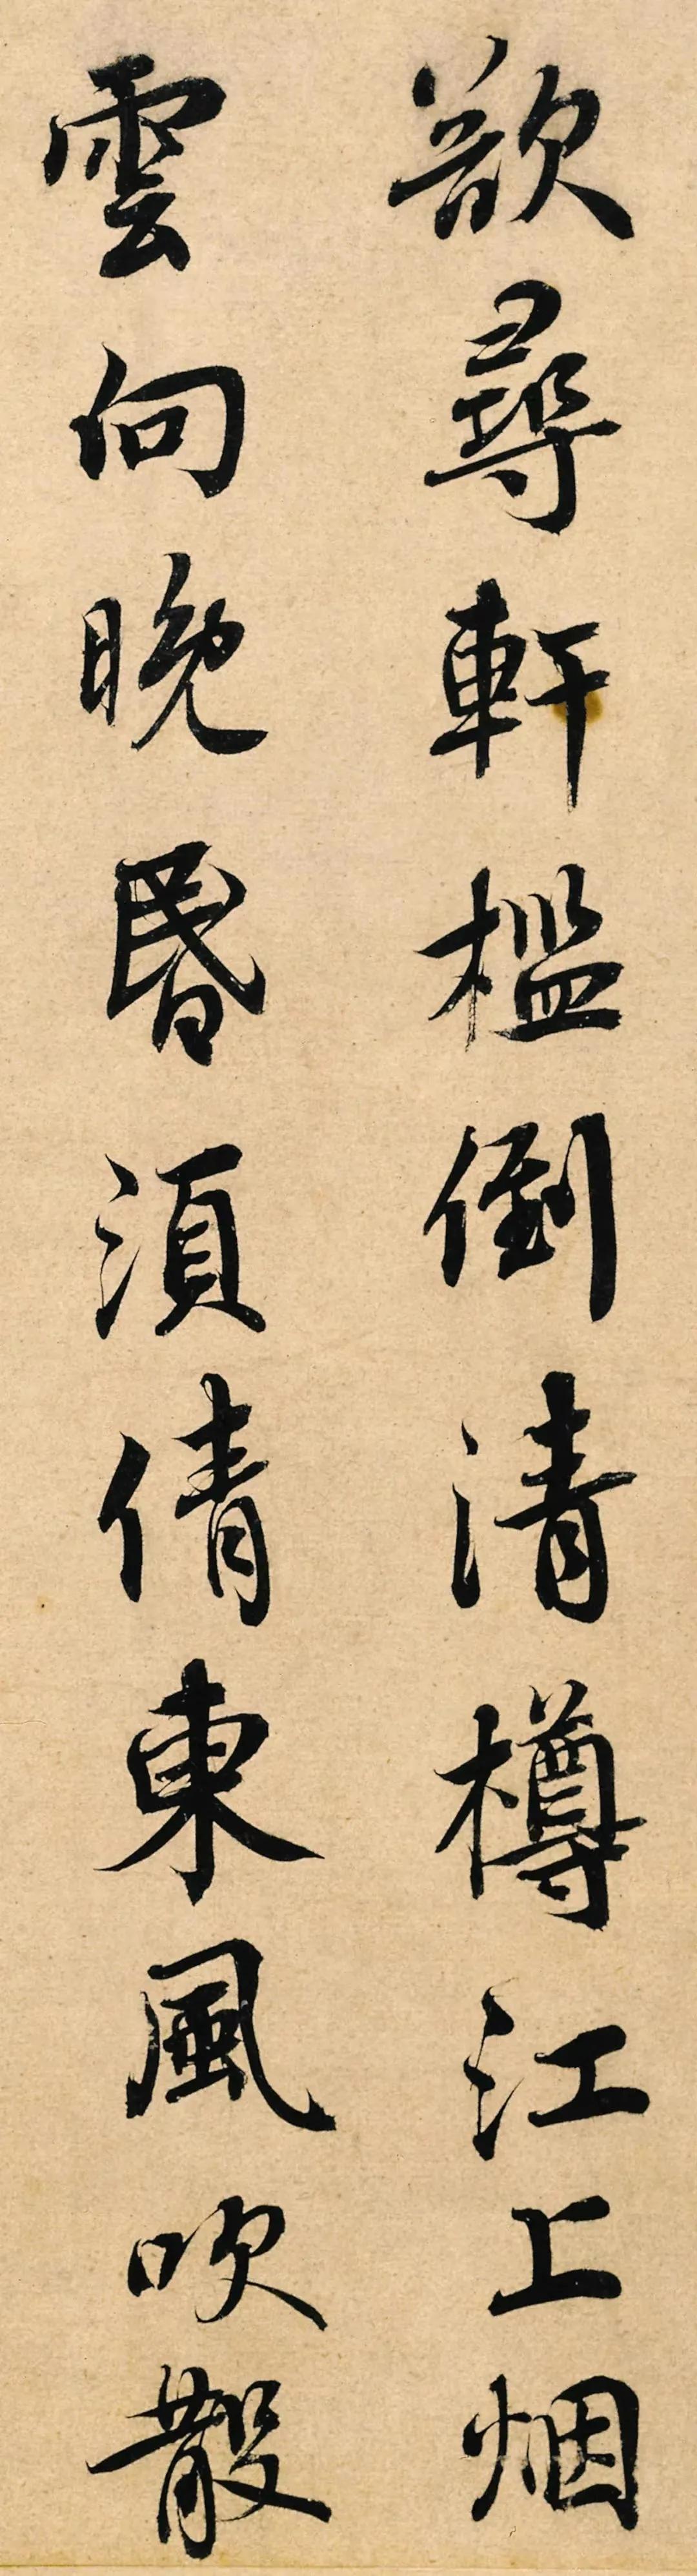 欲尋軒檻倒清樽江上烟
雲向晚昏須倩東風吹散